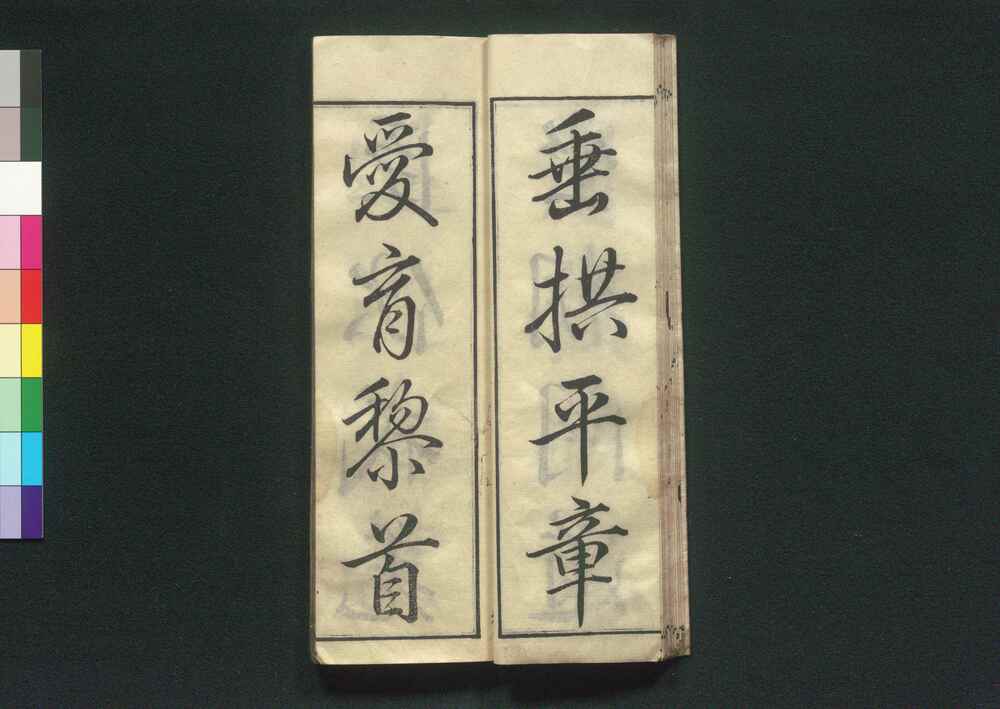 垂拱平章
愛育黎首